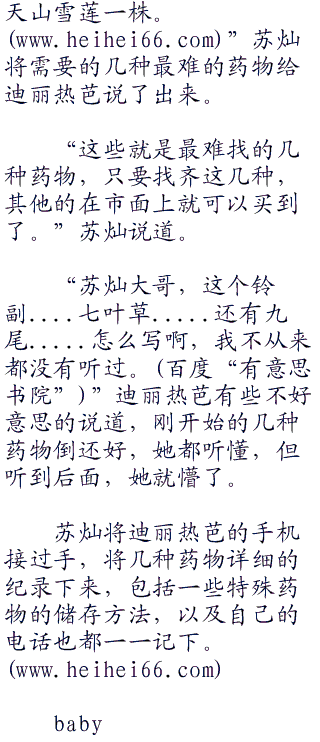 天山雪莲一株。
(www.heihei66.com)”苏灿
将需要的几种最难的药物给
迪丽热芭说了出来。
“这些就是最难找的几
种药物，只要找齐这几种，
其他的在市面上就可以买到
了。”苏灿说道。
“苏灿大哥，这个铃
副....七叶草.....还有九
尾.....怎么写啊，我不从来
都没有听过。(百度“有意思
书院”)”迪丽热芭有些不好
意思的说道，刚开始的几种
药物倒还好，她都听懂，但
听到后面，她就懵了。
苏灿将迪丽热芭的手机
接过手，将几种药物详细的
纪录下来，包括一些特殊药
物的储存方法，以及自己的
电话也都一一记下。
(www.heihei66.com)
baby